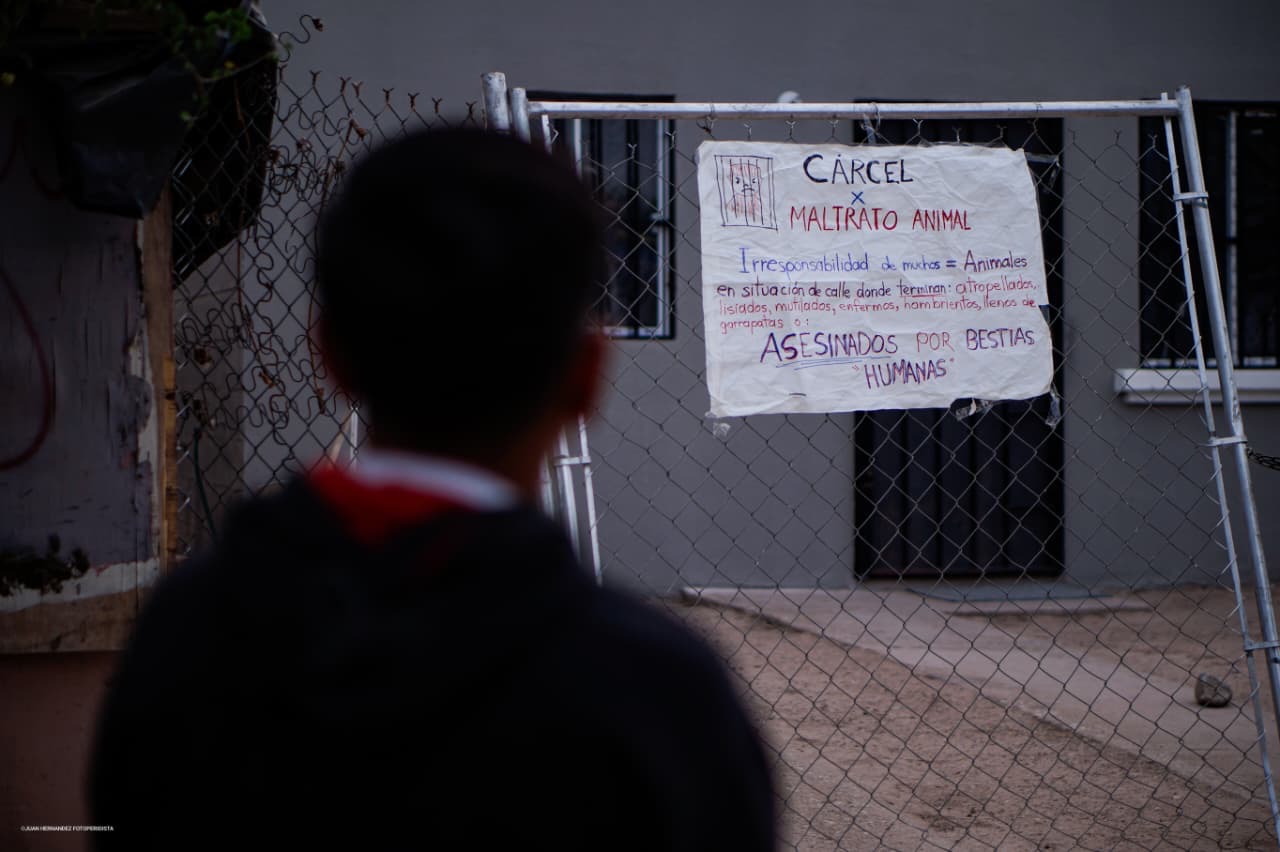 CÁRCEL
X
MALTRATO ANIMAL
Irresponsabilidad de muchos = Animales
en situación de calle donde terminan: atropellados,
lisiados, mutilados, enfermos, hambrientos, llenos de
garrapatas o:
ASESINADOS POR BESTIAS
"HUMANAS"
©JUAN HERNANDEZ FOTOPERIDISTA